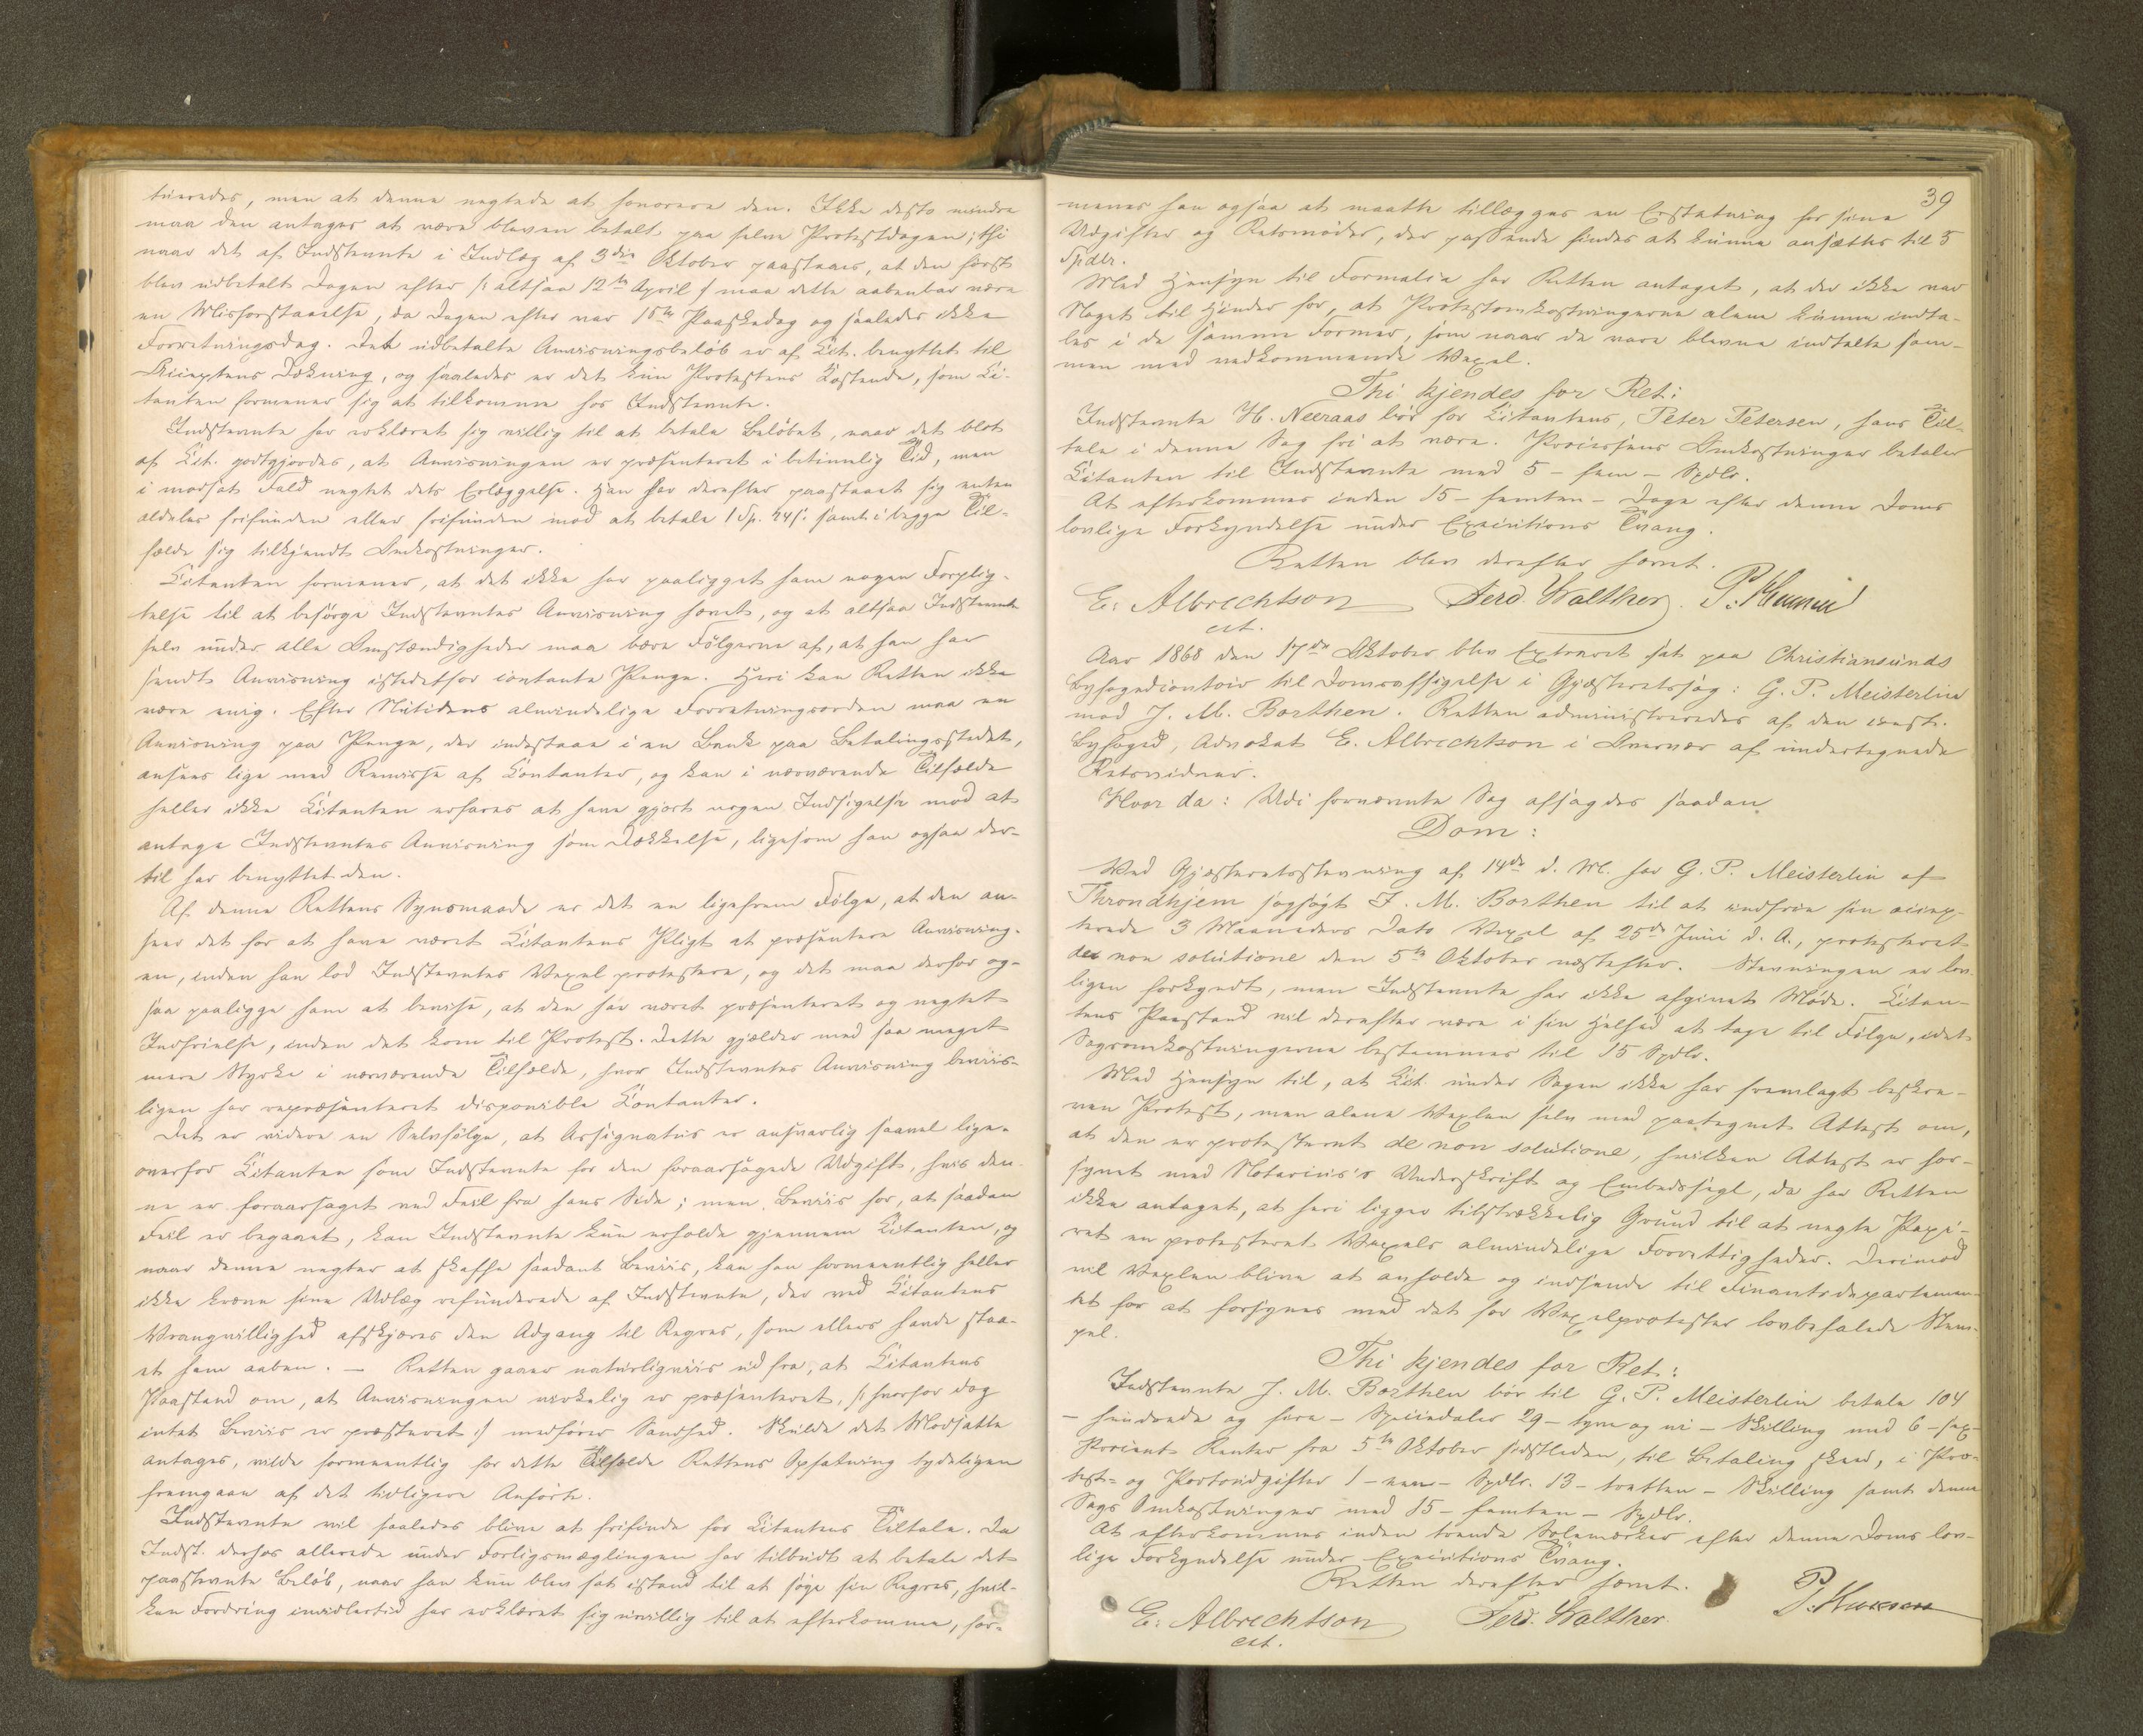 tueredes, men at denne negtede at honorere den. Ikke desto mindre
maa den antages at være bleven betalt paa selve Protestdagen; thi
naar det af Indstevnte i Indlæg af 3die Oktober paastaaes, at den først
blev udbetalt Dagen efter /: altsaa 12te April :/ maa dette aabenbar være
en Misforstaaelse, da Dagen efter var 1ste Paaskedag og saaledes ikke
Forretningsdag. Det udbetalte Anvisningsbeløb er af Cit. benyttet til
Acceptens Dækning, og saaledes er det kun Protestens Kostende, som Ci-
tanten formener sig at tilkomme hos Indstevnte.
Indstevnte har erklæret sig villig til at betale Beløbet, naar det blot
af Cit. godtgjordes, at Anvisningen er præsenteret i betimelig Tid, men
i modsat Fald negtet dets Erlæggelse. Han har derefter paastaaet sig enten
aldeles frifunden eller frifunden imod at betale 1 Sp. 24 s: samt i begge Til-
fælde sig tilkjendt Omkostninger.
Citanten formener, at det ikke har paaligget ham nogen Forplig-
telse til at besørge Indstevntes Anvisning hævet, og at altsaa Indstevnte
selv under alle Omstændigheder maa bære Følgerne af, at han har
sendt Anvisning istedetfor contante Penge. Heri kan Retten ikke
være enig. Efter Nutidens almindelige Forretningsorden maa en
Anvisning paa Penge, der indestaae i en Bank paa Betalingsstedet,
ansees lige med Remisse af Contanter, og kan i nærværende Tilfælde
heller ikke Citanten erfares at have gjort nogen Indsigelse mod at
antage Indstevntes Anvisning som Dækkelse, ligesom han ogsaa der-
til har benyttet den.
Af denne Rettens Synsmaade er det en ligefrem Følge, at den an-
seer det for at have været Citantens Pligt at præsentere Anvisning-
en, inden han lod Indstevntes Vexel protestere, og det maa derfor og-
saa paaligge ham at bevise, at den har været præsenteret og negtet
Indfrielse, inden det kom til Protest. Dette gjælder med saa meget
mere Styrke i nærværende Tilfælde, hvor Indstevntes Anvisning beviis-
ligen har repræsenteret disponible Contanter.
Det er videre en Selvfølge, at Assignatus er ansvarlig saavel lige-
overfor Citanten som Indstevnte for den foraarsagede Udgift, hvis den-
ne er foraarsaget ved Feil fra hans Side; men Beviis for, at saadan
Feil er begaaet, kan Indstevnte kun erholde gjennem Citanten, og
naar denne negter at skaffe saadant Beviis, kan han formeentlig heller
ikke kræve sine Udlæg refunderede af Indstevnte, der ved Citantens
Vrangvillighed afskjæres den Adgang til Regres, som ellers havde staa-
et ham aaben. — Retten gaaer naturligviis ud fra, at Citantens
Paastand om, at Anvisningen virkelig er præsenteret, /: hvorfor dog
intet Beviis er præsteret :/ medfører Sandhed. Skulde det Modsatte
antages, vilde formeentlig for dette Tilfælde Rettens Opfatning tydeligen
fremgaae af det tidligere Anførte.
Indstevnte vil saaledes blive at frifinde for Citantens Tiltale. Da
Indst. derhos allerede under Forligsmæglingen har tilbudt at betale det
paastevnte Beløb, naar han kun blev sat istand til at søge sin Regres, hvil-
ken Fordring imidlertid har erklæret sig uvillig til at efterkomme, for-
39
menes han ogsaa at maatte tillægges en Erstatning for sine
Udgifter og Retsmøder, der passende findes at kunne ansættes til 5
Spdlr.
Med Hensyn til Formalia har Retten antaget, at der ikke var
Noget til Hinder for, at Protestomkostningerne alene kunne indta-
les i de samme Former, som naar de vare blevne indtalte sam-
men med vedkommende Vexel.
Thi kjendes for Ret:
Indstevnte H. Neeraas bør for Citantens, Peter Petersen, hans Til-
tale i denne Sag fri at være. Processens Omkostninger betaler
Citanten til Indstevnte med 5 - fem - Spdlr.
At efterkommes inden 15 - femten - Dage efter denne Doms
lovlige Forkyndelse under Executions Tvang.
Retten blev derefter hævet.
E. Albrechtson Ferd. Walther.
cst.
Aar 1868 den 17de Oktober blev Extraret sat paa Christiansunds
Byfogedcontoir til Domsafsigelse i Gjæsteretssag: G. P. Meisterlin
mod J. M. Borthen. Retten administreredes af den const.
Byfoged, Advokat E. Albrechtson i Overvær af undertegnede
Retsvidner.
Hvor da: Udi fornævnte Sag afsagdes saadan
Dom:
Ved Gjæsteretsstevning af 14de d. M. har G. P. Meisterlin af
Throndhjem sagsøgt J. M. Borthen til at indfrie sin accep-
terede 3 Maaneders Dato Vexel af 25de Juni d. A., protesteret
de non solutione den 5te Oktober næstefter. Stevningen er lov-
ligen forkyndt, men Indstevnte har ikke afgivet Møde. Citan-
tens Paastand vil derefter være i sin Helhed at tage til Følge, idet
Sagsomkostningerne bestemmes til 15 Spdlr.
Med Hensyn til, at Cit. under Sagen ikke har fremlagt beskre-
ven Protest, men alene Vexlen selv med paategnet Attest om,
at den er protesteret de non solutione, hvilken Attest er for-
synet med Notarius's Underskrift og Embedssegl, da har Retten
ikke antaget, at heri ligger tilstrækkelig Grund til at negte Papi-
ret en protesteret Vexels almindelige Forrettigheder. Derimod
vil Vexlen blive at anholde og indsende til Finantsdepartemen-
tet for at forsynes med det for Vexelprotester lovbefalede Stem-
pel.
Thi kjendes for Ret:
Indstevnte J. M. Borthen bør til G. P. Meisterlin betale 104
- hundrede og fire - Speciedaler 29 - tyve og ni - Skilling med 6 - sex -
Procent Renter fra 5te Oktober sidstleden, til Betaling skeer, i Pro-
test- og Portoudgifter 1 - een - Spdlr. 13 - tretten - Skilling samt denne
Sags Omkostninger med 15 - femten - Spdlr.
At efterkommes inden trende Solemærker efter denne Doms lov-
lige Forkyndelse under Executions Tvang.
Retten derefter hævet.
E. Albrechtson Ferd. Walther.
cst.